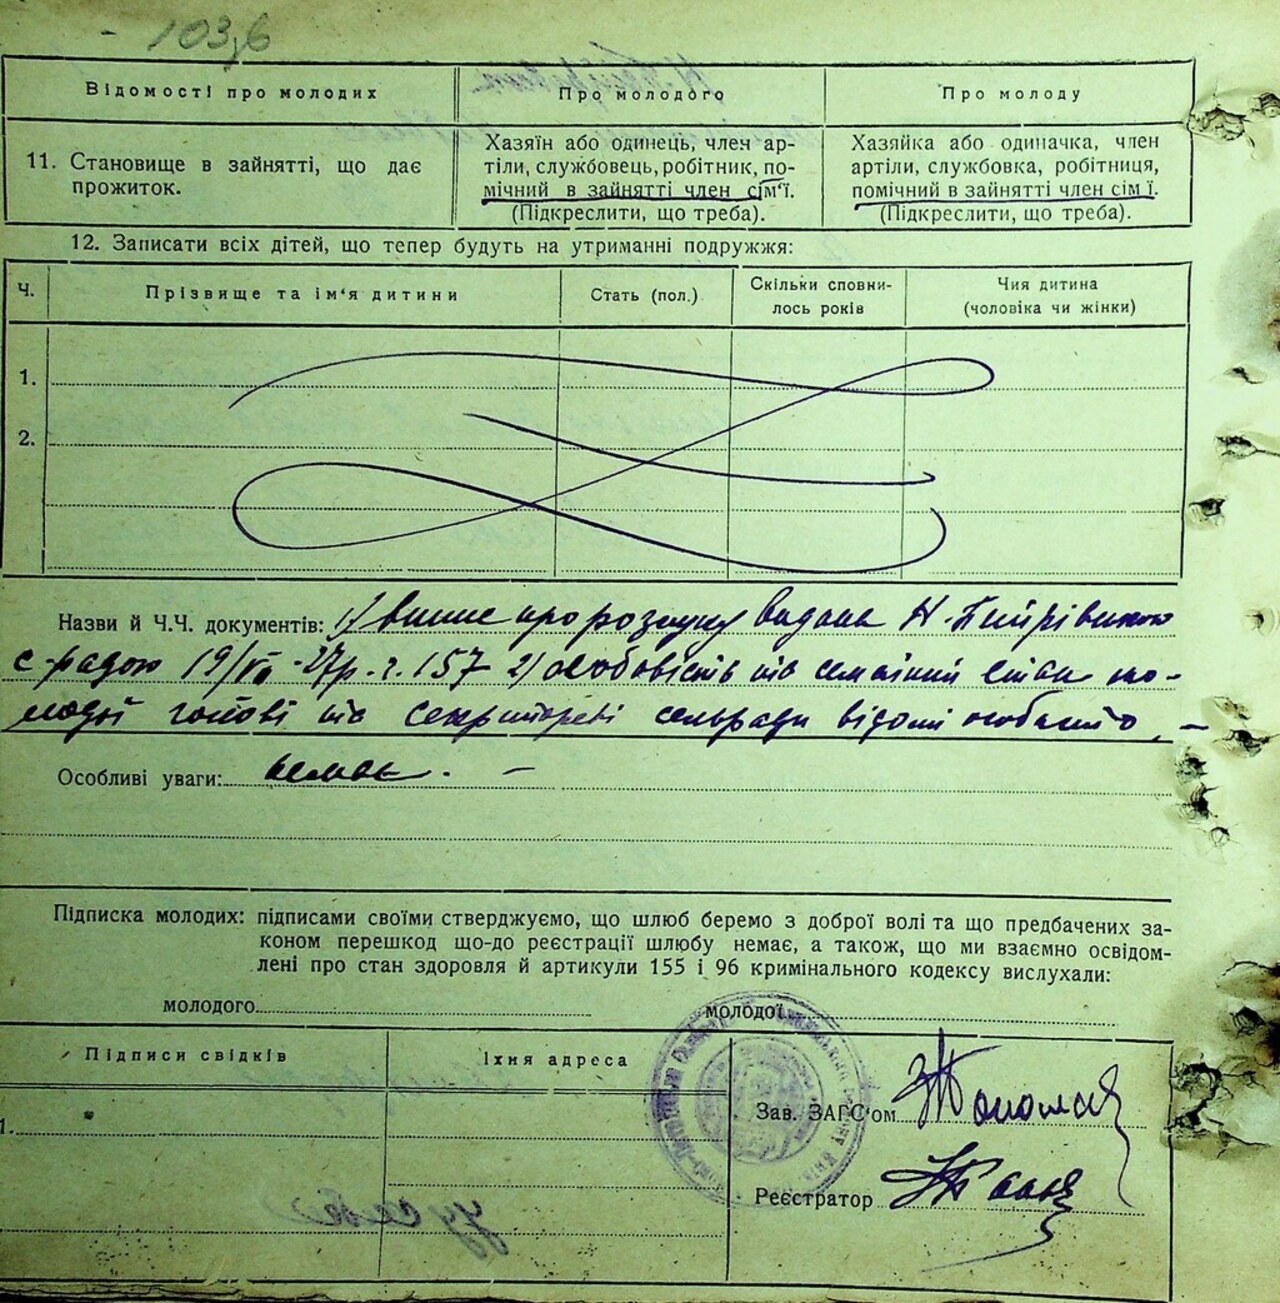 - 103,6
Відомості про молодих
Про молодого
Про молоду
11. Становище в зайнятті, що дає
прожиток.
Хазяїн або одинець, член ар-
тілі, службовець, робітник, по-
мічний в зайнятті член сім'ї.
(Підкреслити, що треба).
Хазяйка або одиначка, член
артілі, службовка, робітниця,
помічний в зайнятті член сім ї.
(Підкреслити, що треба).
12. Записати всіх дітей, що тепер будуть на утриманні подружжя:
Ч.
Прізвище та ім'я дитини
Стать (пол.)
Скільки сповни-
лось років
Чия дитина
(чоловіка чи жінки)
1.
2.
Назви й Ч.Ч. документів: 1) про розлуку видана Н.
с-радою 19/ -27р. ч. 157 2) особовість та сімейний стан мо-
лодої голові та секретареві сельради відомі особисто. -
Особливі уваги: немає. -
Підписка молодих: підписами своїми стверджуємо, що шлюб беремо з доброї волі та що предбачених за-
коном перешкод що-до реєстрації шлюбу немає, а також, що ми взаємно освідом-
лені про стан здоровля й артикули 155 і 96 кримінального кодексу вислухали:
молодого
молодої
Підписи свідків
Їхня адреса
1.
Зав. ЗАГС'ом
Реєстратор